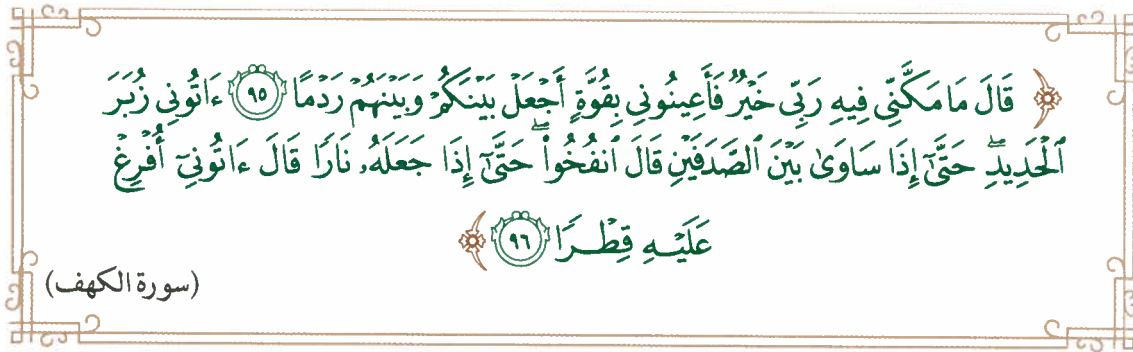 ﴿ قَالَ مَا مَكَّنِّى فِيهِ رَبِّى خَيْرٌ فَأَعِينُونِى بِقُوَّةٍ أَجْعَلْ بَيْنَكُمْ وَبَيْنَهُمْ رَدْمًا ٩٥ ءَاتُونِى زُبَرَ
ٱلْحَدِيدِۖ حَتَّىٰٓ إِذَا سَاوَىٰ بَيْنَ ٱلصَّدَفَيْنِ قَالَ ٱنفُخُوا۟ۖ حَتَّىٰٓ إِذَا جَعَلَهُۥ نَارًا قَالَ ءَاتُونِىٓ أُفْرِغْ
عَلَيْهِ قِطْرًا ٩٦ ﴾
(سورة الكهف)